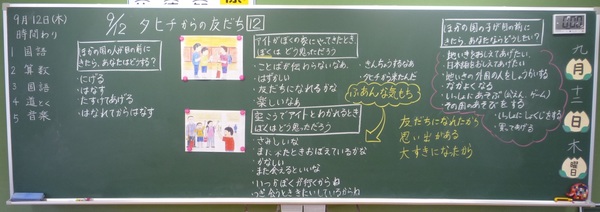 9月12日(木)
時間わり
1 国語
2 算数
3 国語
4 道とく
5 音楽
9/12 タヒチからの友だち 12
ほかの国の人が目の前に
きたら、あなたはどうする?
・にげる
・はなす
・たすけてあげる
・はなれてからはなす
アイトがぼくの家にやってきたとき
ぼくは どう思っただろう
・ことばが伝わらないなぁ
・はずかしい
・友だちになれるかな
・楽しいなぁ
・きんちょうするなぁ
・タヒチから来たんだ
ふあんな気もち
空こうでアイトとわかれるとき
ぼくはどう思っただろう
・さみしいな
・また来たときおぼえているかな
・かなしい
・また会えるといいな
・いつかぼくが行くからね
つぎ会うときたいしているからね
友だちになれたから
思い出がある
大すきになったから
ほかの国の子が目の前に
きたら、あなたならどうしたい?
・地いきをおしえてあげたい
・日本語をおしえてあげたい
・地いきの外国の人もしょうかいする
・なかよくなる
・いっしょにあそぶ
・その国のあそびをする
・いっしょにしゅくだいをする
九
月
十二
日
木
曜日